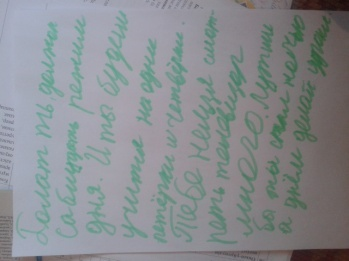 Болат ть должен
саблищать режим
дня. И ты будеш
учится на одни
петёрки и четвёрки.
Тебе нельзя смот-
реть телевизар
много лутши
бы ты спал ночью
а днём делай уроки